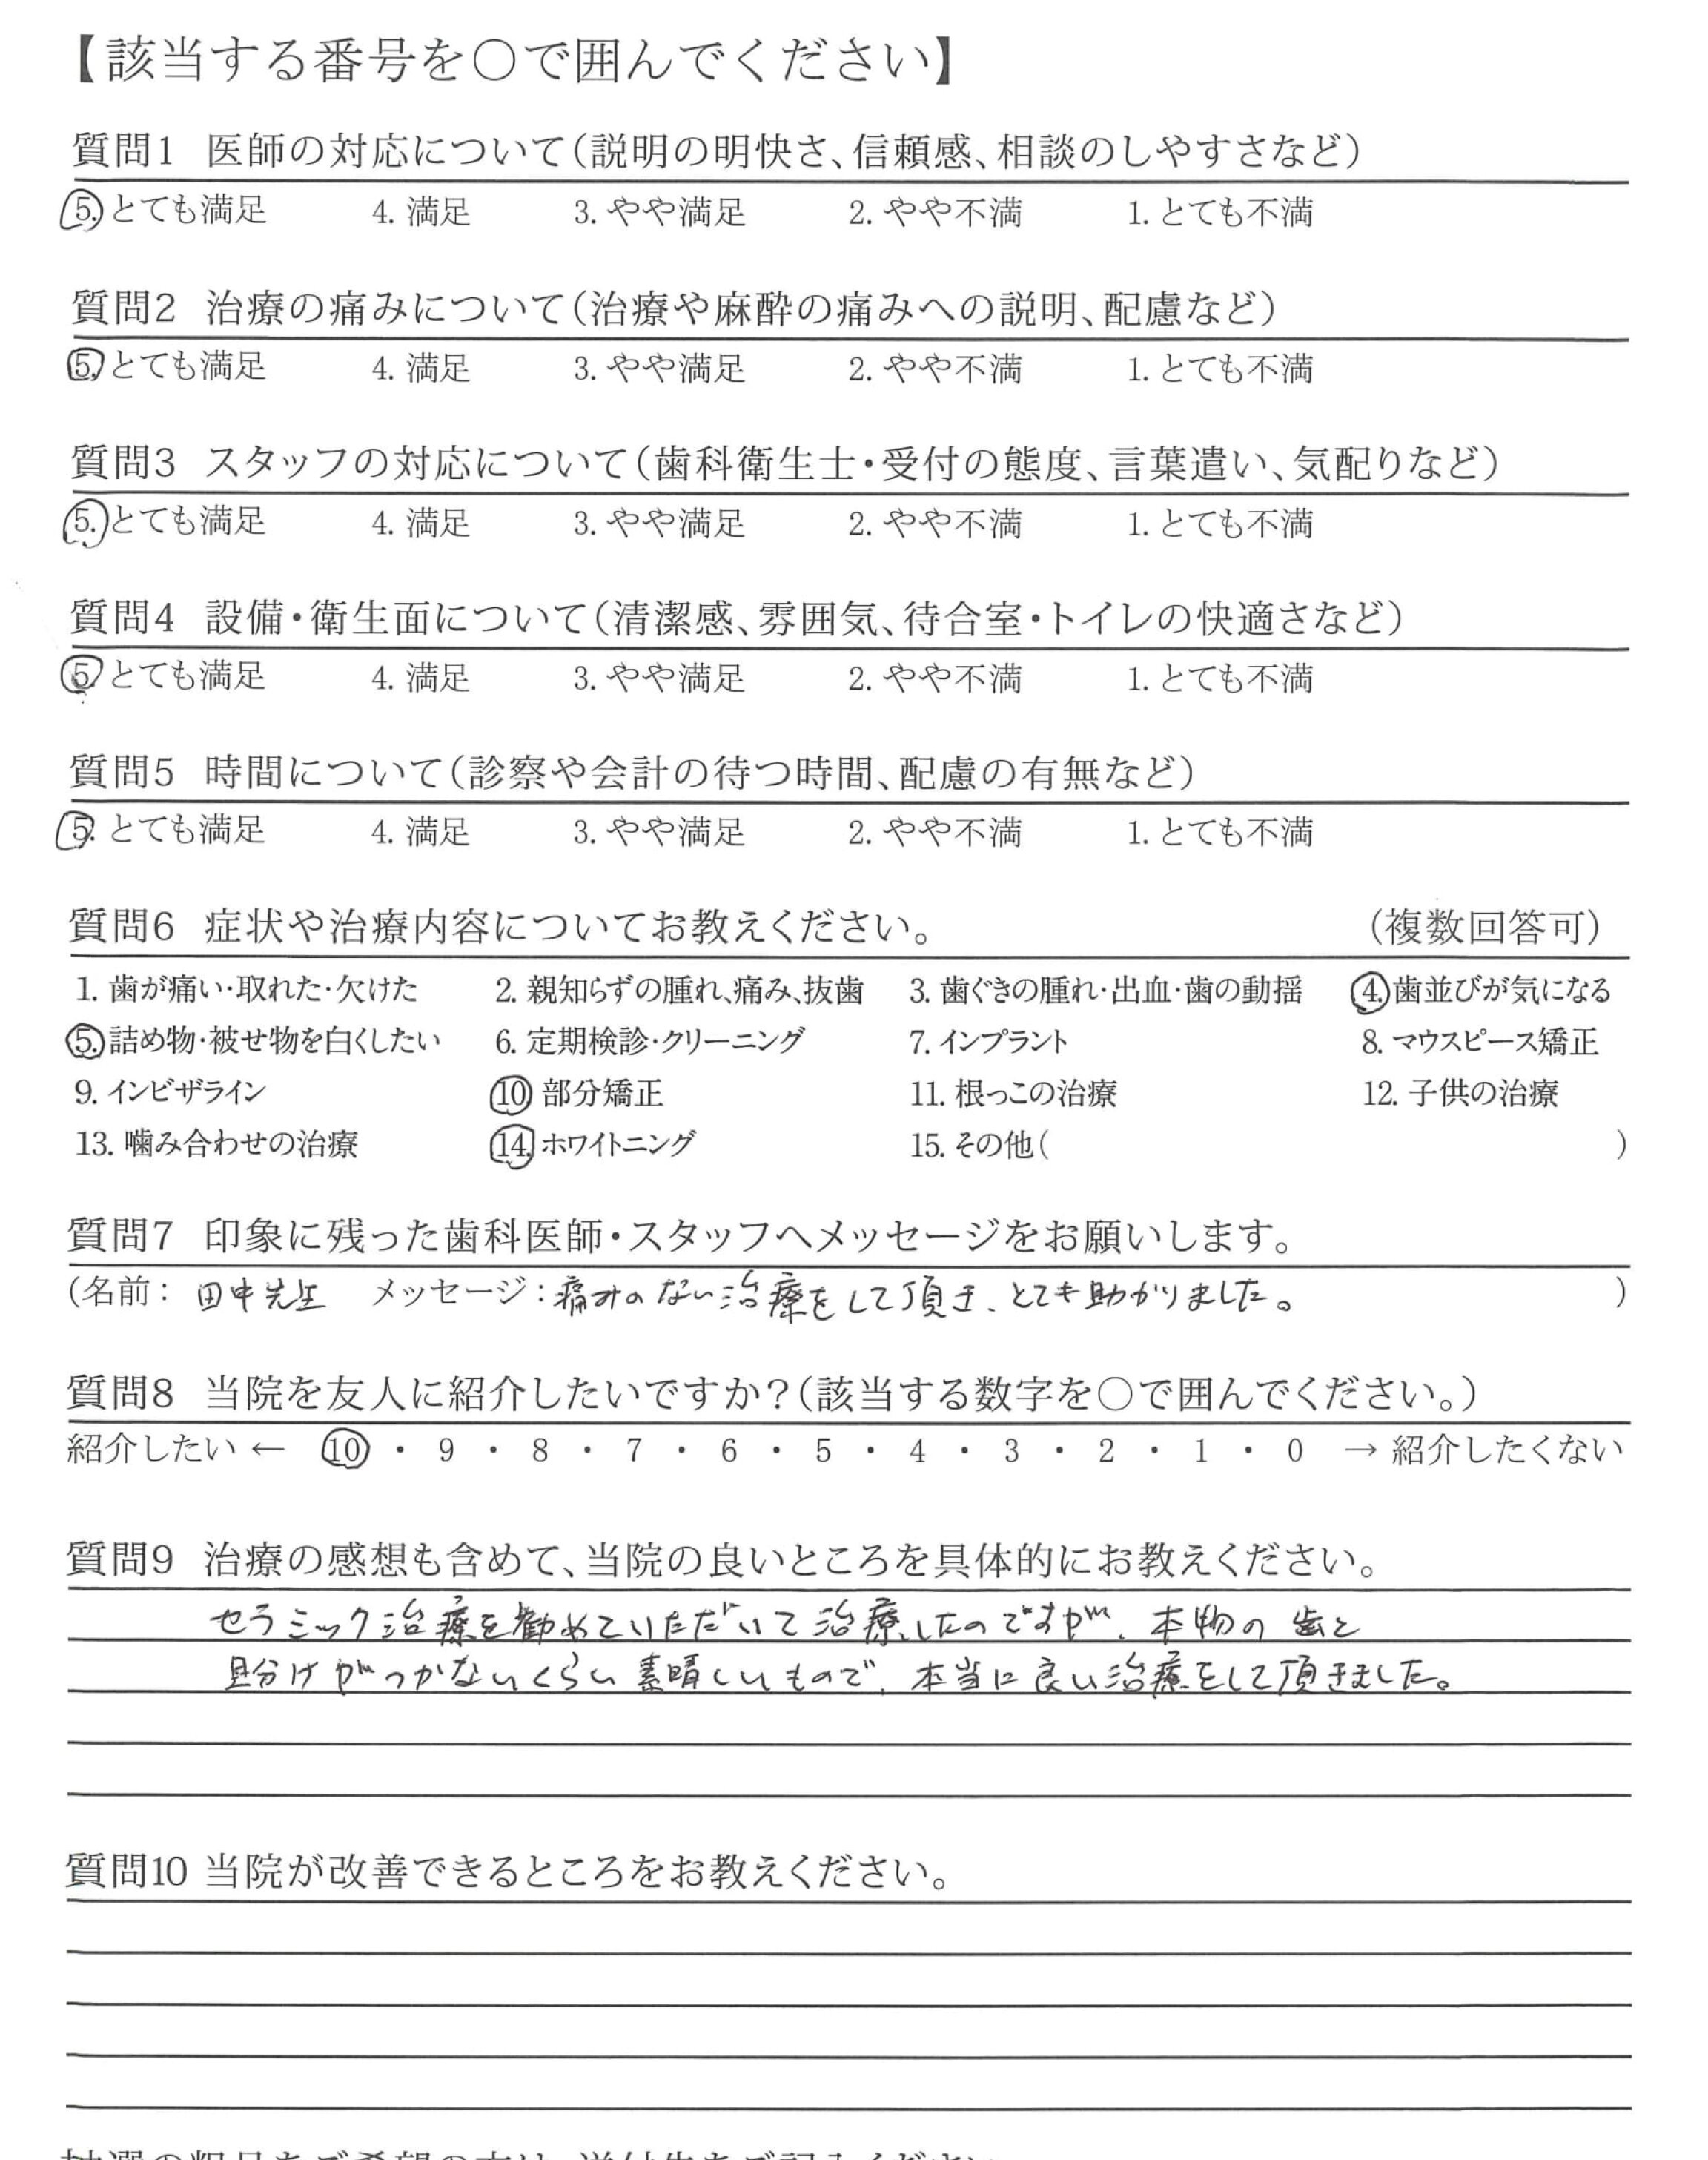 【該当する番号を○で囲んでください】
質問1 医師の対応について(説明の明快さ、信頼感、相談のしやすさなど)
5. とても満足 4. 満足 3. やや満足 2. やや不満 1. とても不満
質問2 治療の痛みについて(治療や麻酔の痛みへの説明、配慮など)
5. とても満足 4. 満足 3. やや満足 2. やや不満 1. とても不満
質問3 スタッフの対応について(歯科衛生士・受付の態度、言葉遣い、気配りなど)
5. とても満足 4. 満足 3. やや満足 2. やや不満 1. とても不満
質問4 設備・衛生面について(清潔感、雰囲気、待合室・トイレの快適さなど)
5. とても満足 4. 満足 3. やや満足 2. やや不満 1. とても不満
質問5 時間について(診察や会計の待つ時間、配慮の有無など)
5. とても満足 4. 満足 3. やや満足 2. やや不満 1. とても不満
質問6 症状や治療内容についてお教えください。 (複数回答可)
1. 歯が痛い・取れた・欠けた 2. 親知らずの腫れ、痛み、抜歯 3. 歯ぐきの腫れ・出血・歯の動揺 4. 歯並びが気になる
5. 詰め物・被せ物を白くしたい 6. 定期検診・クリーニング 7. インプラント 8. マウスピース矯正
9. インビザライン 10. 部分矯正 11. 根っこの治療 12. 子供の治療
13. 噛み合わせの治療 14. ホワイトニング 15. その他( )
質問7 印象に残った歯科医師・スタッフへメッセージをお願いします。
(名前: 田中先生 メッセージ:痛みのない治療をして頂き、とても助かりました。 )
質問8 当院を友人に紹介したいですか?(該当する数字を○で囲んでください。)
紹介したい ← 10 ・ 9 ・ 8 ・ 7 ・ 6 ・ 5 ・ 4 ・ 3 ・ 2 ・ 1 ・ 0 → 紹介したくない
質問9 治療の感想も含めて、当院の良いところを具体的にお教えください。
セラミック治療を勧めていただいて治療したのですが、本物の歯と
見分けがつかないくらい素晴しいもので、本当に良い治療をして頂きました。
質問10 当院が改善できるところをお教えください。